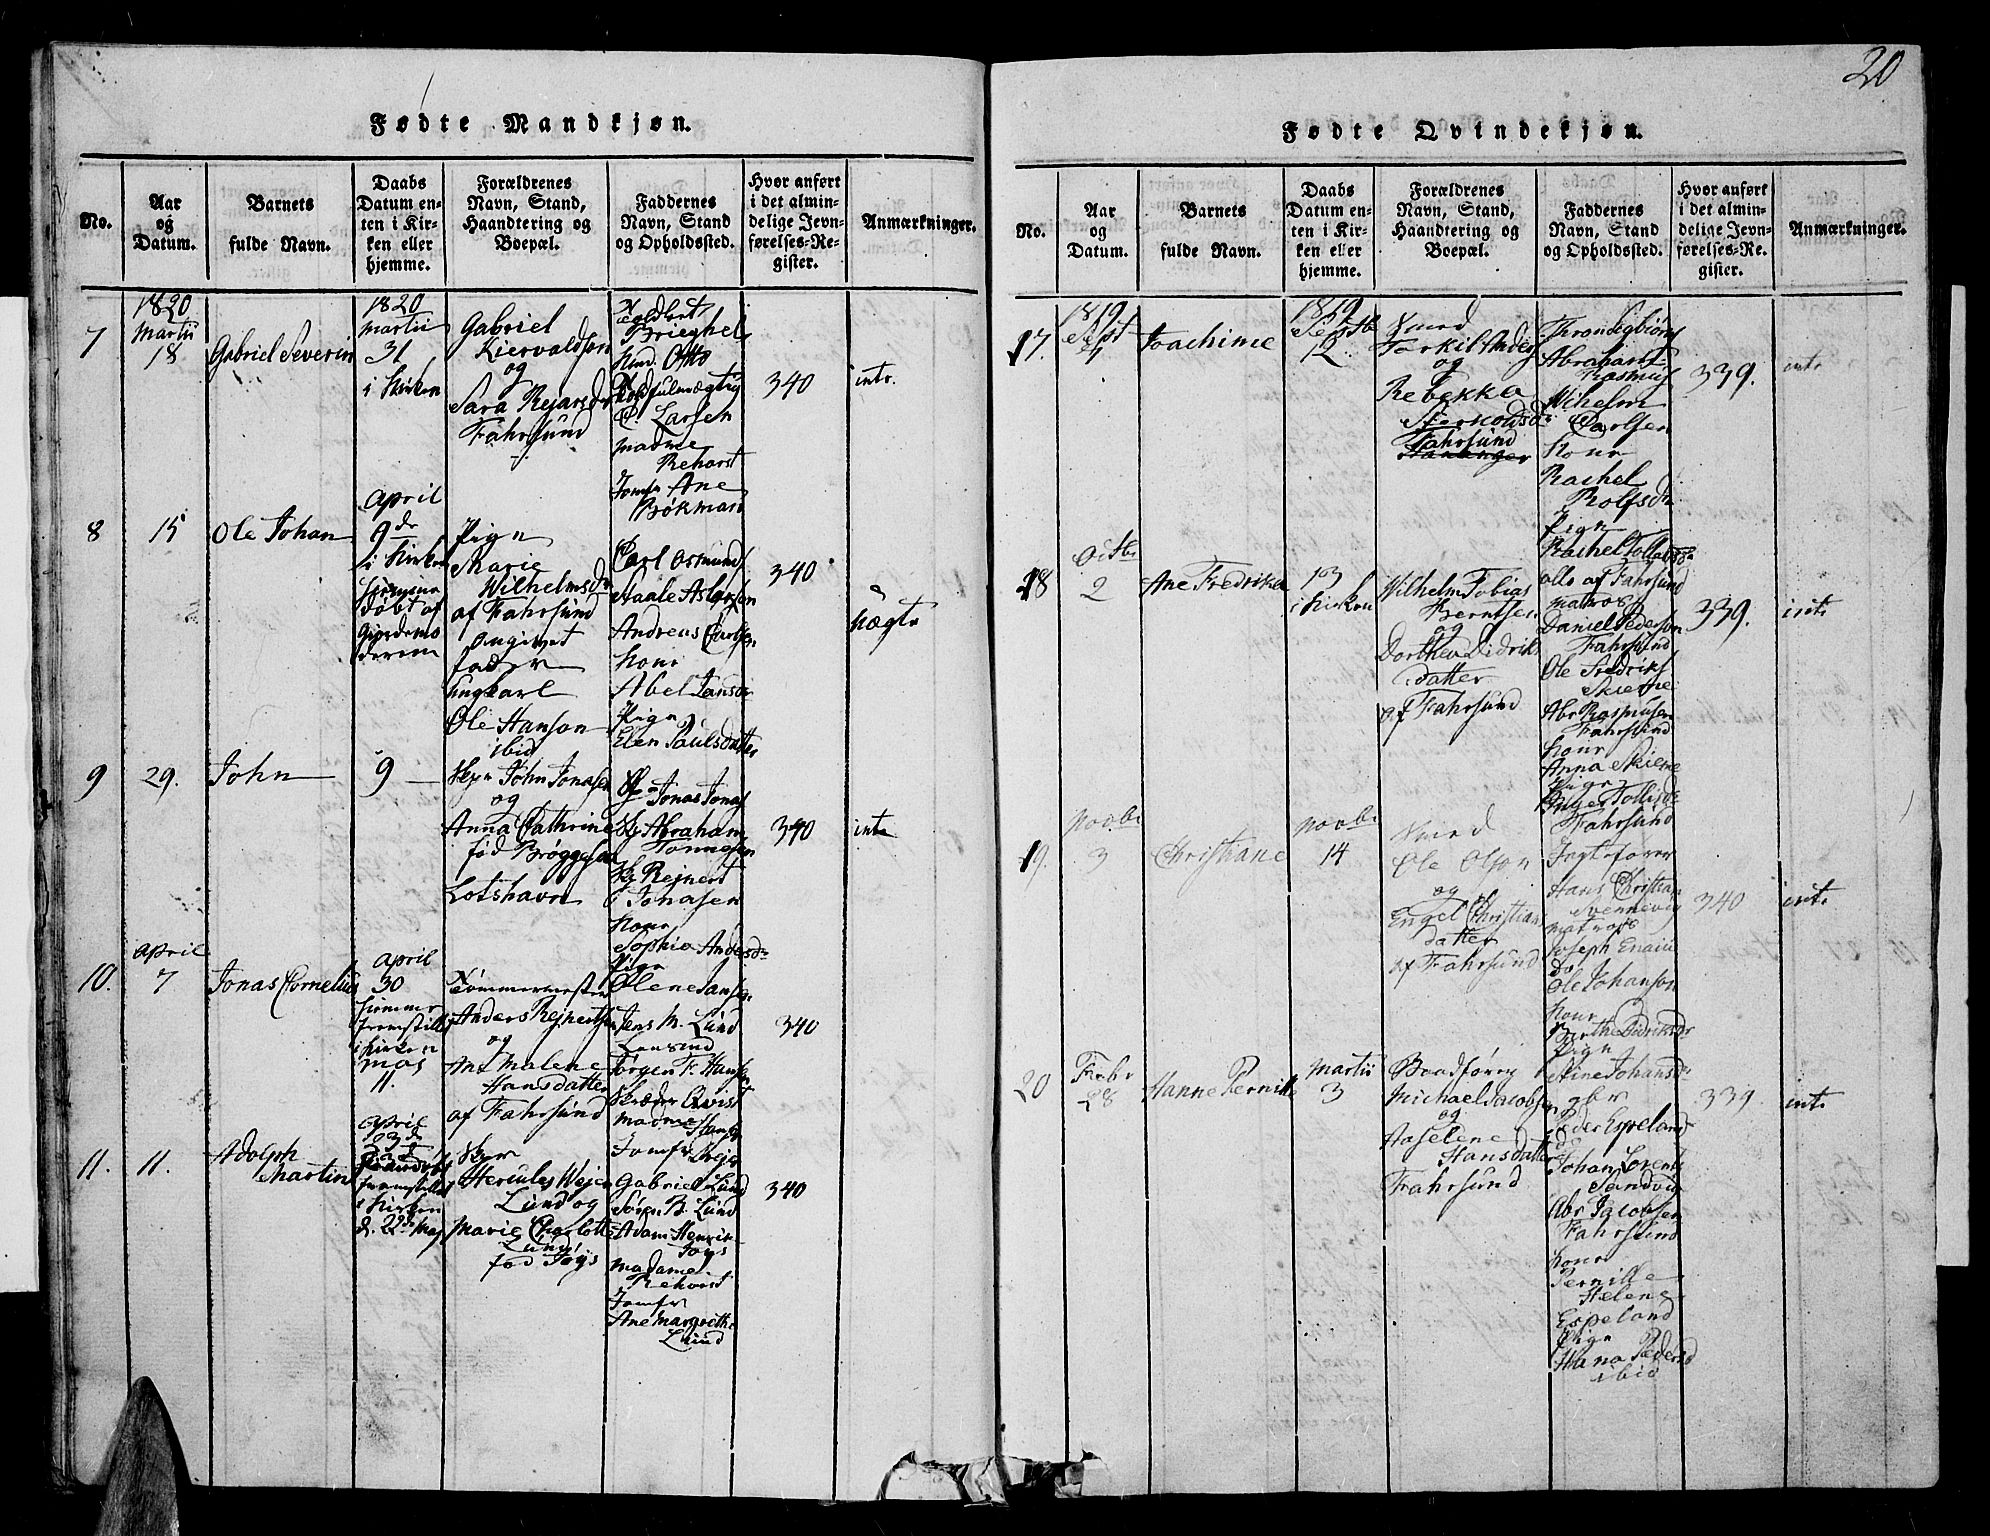 20
Fødte Mandkjøn.
No.
Aar
og
Datum.
Barnets
fulde Navn.
Daabs
Datum en-
ten i Kir-
ken eller
hjemme.
Forældrenes
Navn, Stand,
Haandtering og
Boepæl.
Faddernes
Navn, Stand
og Opholdssted.
Hvor anført
i det almin-
delige Jevn-
førelses-Re-
gister.
Anmærkninger.
7
1820
Martii
18
Gabriel Severin
1820
Martii
31
i Kirken
Gabriel
Kiervaldsøn
og
Sara
Fahrsund
Brieghel
Otto
C. Larsen
Madme
Rehorst
Jomfr Ane
Brökman
340
intr.
8
15
Ole Johan
April
9de
i Kirken
döbt af
Pige
Marie
Wilhelmsdr
af Fahrsund
angivet
fader
Ungkarl
Ole Hanson
ibid
Carl Osmunds
Aslagsøn
Andreas Carlsen
Kone
Abel
Pige
Elen Paulsdatter
340
Uægte
9
29.
John
9
Skpr John Jonasen
og
Anna Cathrine
fød Bröggesen
Lotshavn
Jonas Jonas
Abraham
Tönnesen
Rejnert
Jonasen
Kone
Sophia Andersdr
Pige
Olene Jansdr
340
intr
10.
April
7
Jonas Cornelius
April
30
hiemme
fremstillet
i Kirken
Maj
11.
Tömmermester
Anders Rejnertsen
og
Ane Malene
Hansdatter
af Fahrsund
Jens M. Lund
Jörgen F. Hans
Skræder Qvist
Madme
Jomfr
340
11.
11.
Adolph
Martin
April
23de
fremstillet
i Kirken
d. 22de Maj
Hercules Wejer
Lund og
Marie Charlotte
Lund
fød Joys
Gabriel Lund
Søren B. Lund
Adam Henrik
Joys
Madame
Rehorst
Jomfr
Ane Margrethe
Lund
340
Fødte Qvindekjøn.
No.
Aar
og
Datum.
Barnets
fulde Navn.
Daabs
Datum en-
ten i Kir-
ken eller
hjemme.
Forældrenes
Navn, Stand,
Haandtering og
Boepæl.
Faddernes
Navn, Stand
og Opholdssted.
Hvor anført
i det almin-
delige Jevn-
førelses-Re-
gister.
Anmærkninger.
17.
1819
Sept
Joachime
1819
Septbr
12
Torkil Anders
og
Rebekka
Fahrsund
Abrahams
Rasmus
Wilhelm
Carlsen
Kone
Rachel
Rolfsdr
Pige
Rachel
alle af Fahrsund
339.
intr
18
Octbr
2
Ane Fredrikea
103
i Kirken
Wilhelm Tobias
Berntsen
og
Dorthea Didriks
datter
af Fahrsund
Matros
Daniel Pederson
Fahrsund
Ole Fredriks
Abr Rasmusen
Fahrsund
Kone
Anna
Pige
Fahrsund
339.
intr
19.
Novbr
3
Christiane
Novbr
14
Ole Olson
og
Engel Christian
datter
af Fahrsund
Hans Christian
Svennevig
Matros
Joseph
do
Ole Johanson
Kone
Berthe Didriksdr
Pige
Stine Johansdr
340
intr
20
Febr
28
Hanne Pernille
Martii
3
Michael Jacobsen
og
Aaselene
Hansdatter
Fahrsund
Peder Espeland
Johan Lorents
Sandvig
Abr Jacobsen
Fahrsund
Kone
Pernille
Helene
Espeland
Pige
Hana Peders
ibid
339
intr